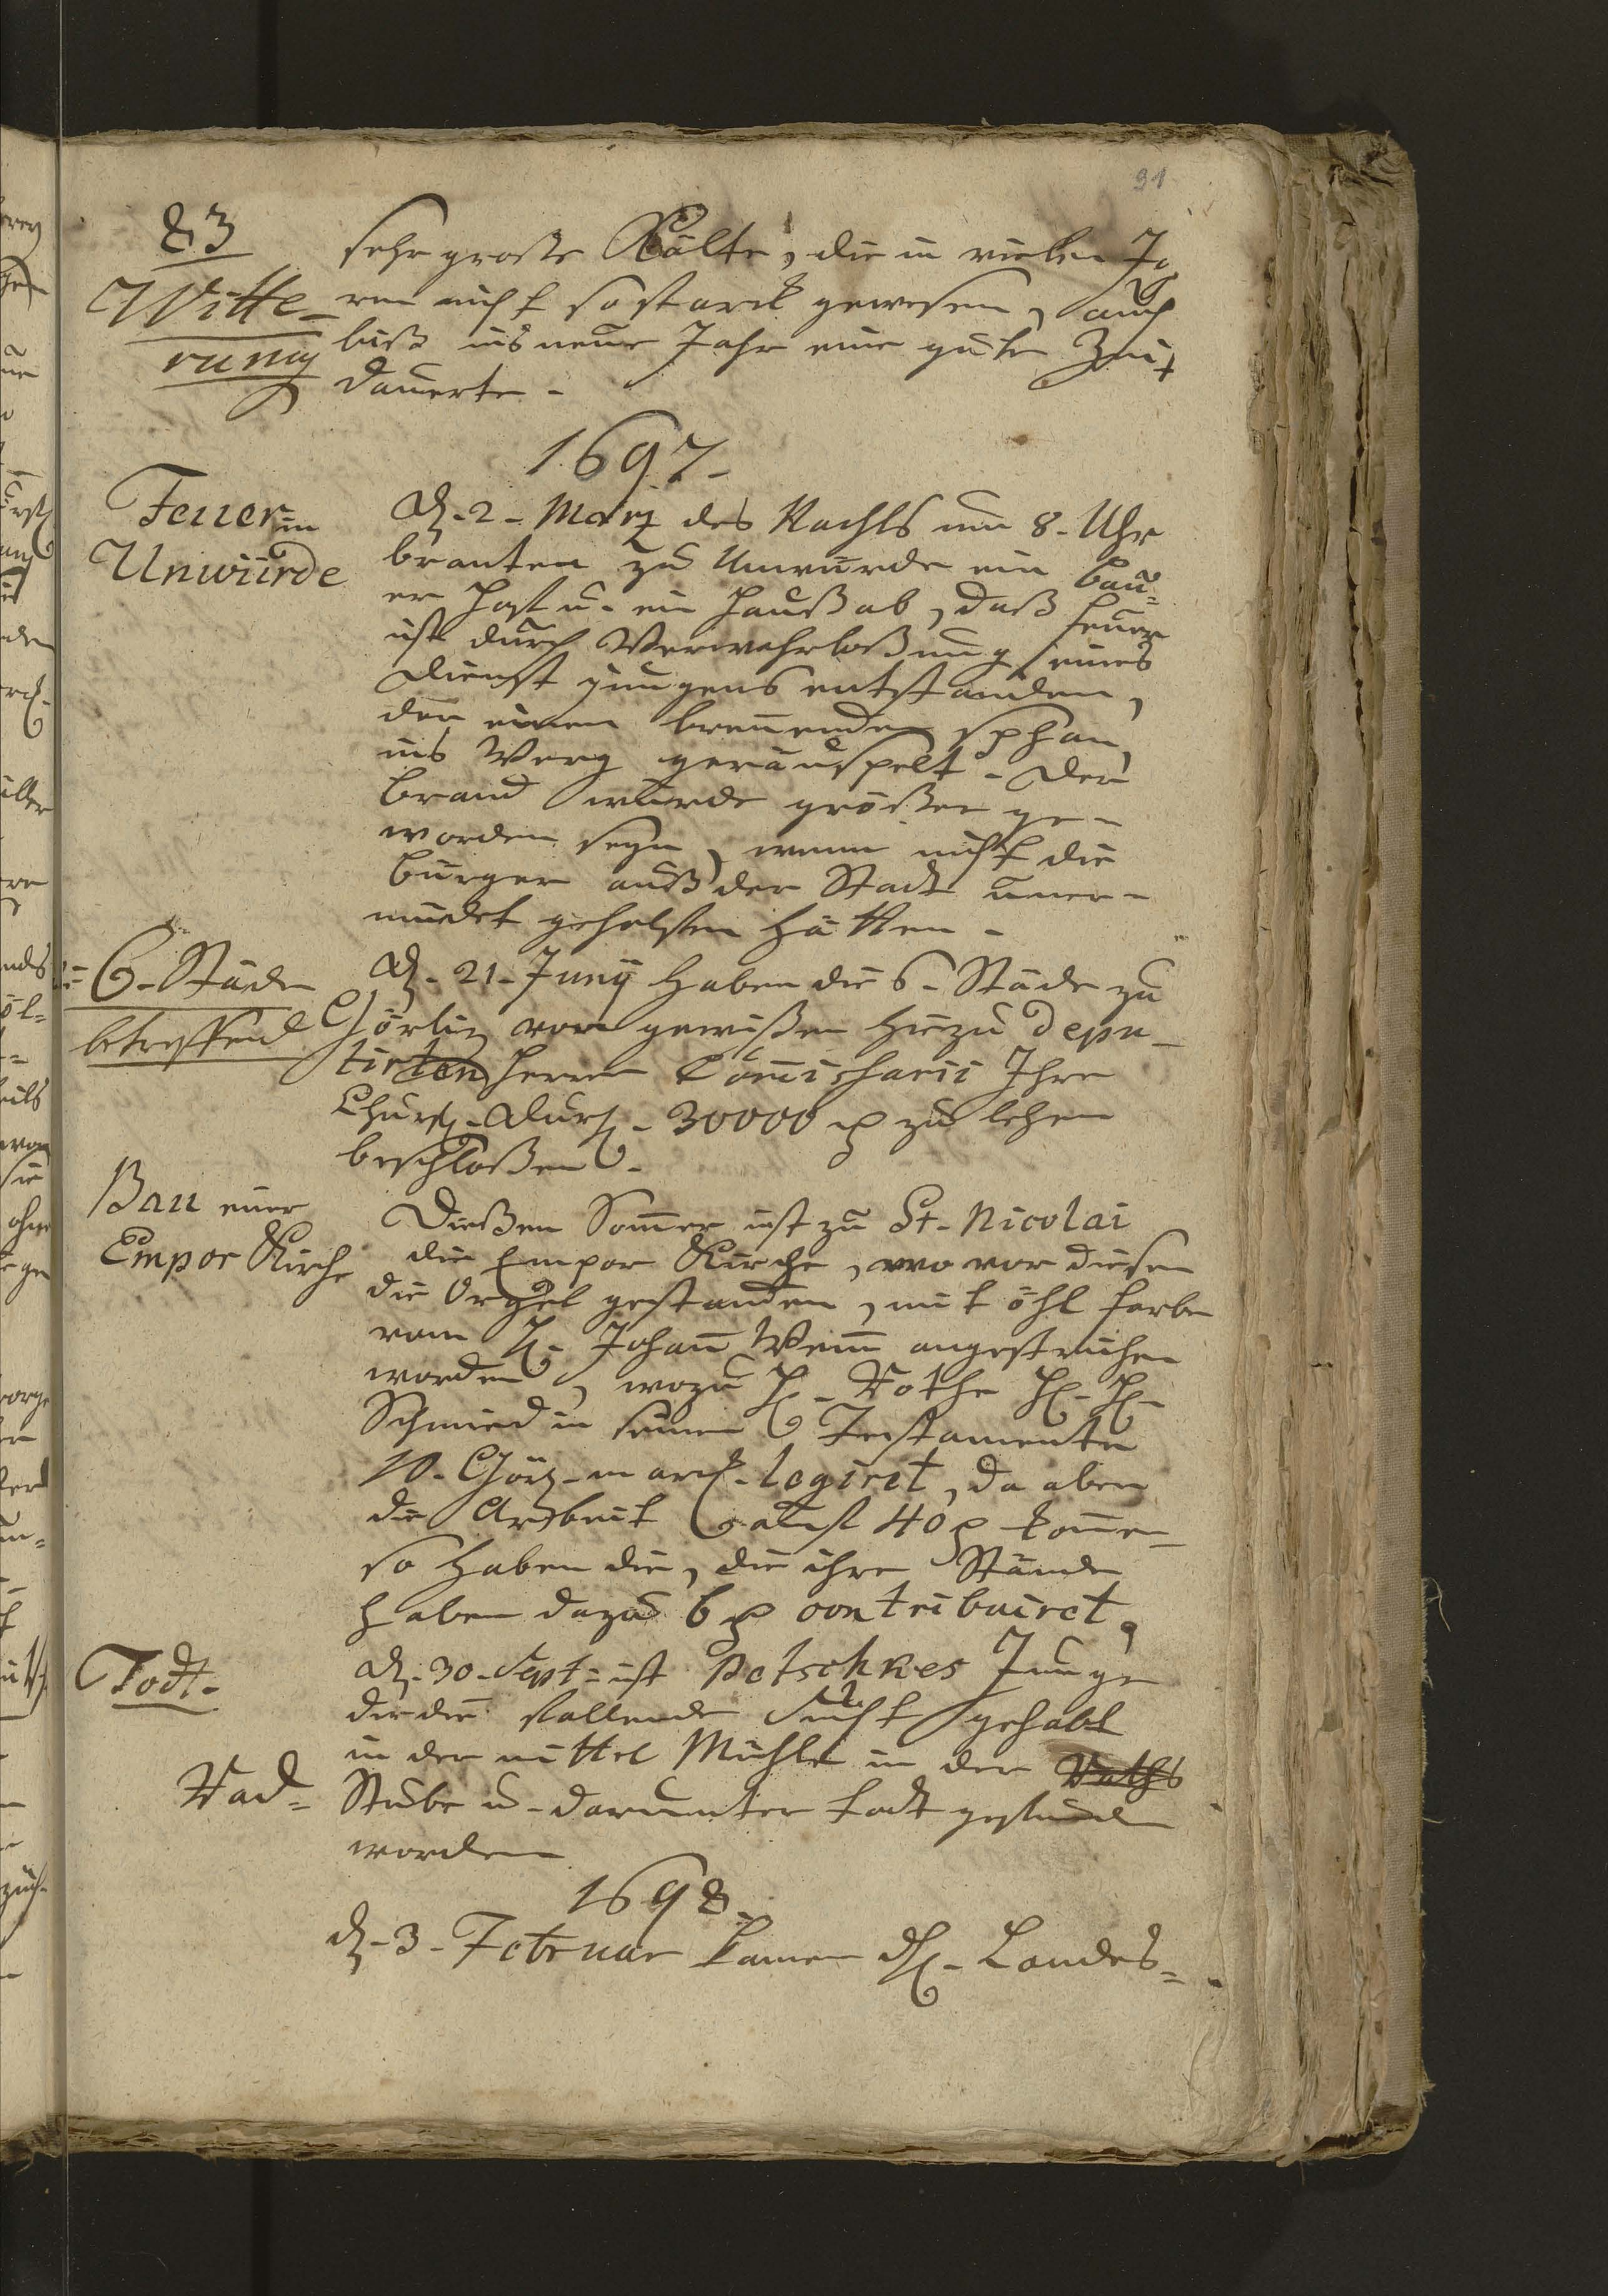 91
83
Witte-
rung
sehr große Kälte, die in vielen Ja
ren nicht so starck gewesen, auch
biß ins neue Jahr eine gute Zeit
dauerte.
1697.
Feuer in
Unwürde
d. 2. Märtz des Nachts um 8. Uhr
branten zu Unwürde ein Bau-
er Hoff u. ein Hauß ab, daß Feuer
ist durch Verwahrloßung eines
Dienst jungens entstanden,
der einen brennenden Sphan
ins Werg geräuspelt. Der
Brand würde größer ge-
worden seyn, wenn nicht die
Bürger auß der Stadt uner-
müdet geholffen hätten.
6. Städe
betreffend
d. 21. Junÿ haben die 6. Städe zu
Görliz von gewißen hiezu depu-
tirten Herren Commissharii Ihre
Churf. Durch. 30000 zu lehen
beschloßen.
Bau einer
Empor Kirche
Dießen Sommer ist zu St. Nicolai
die Empor Kirche, wo vor diesen
die Orgel gestanden, mit öhl farbe
vom H. Johann angestrichen
worden, wozu H. Rothe H. H.
Schmied in seinen Testamente
10. Görl. marck. legiret, da aber
die Arbeit 40 komen
so haben die, die ihre Stände
haben dazu 6 contribuiret.
Todt.
d. 30. Sept: ist Petschkes Junge
der die fallende Sucht gehabt
in der mittel Mühle in der Raths
Rad=
Stube u. darunter todt gefunden
worden
1698.
d. 3. Februar kamen dH. Landes=